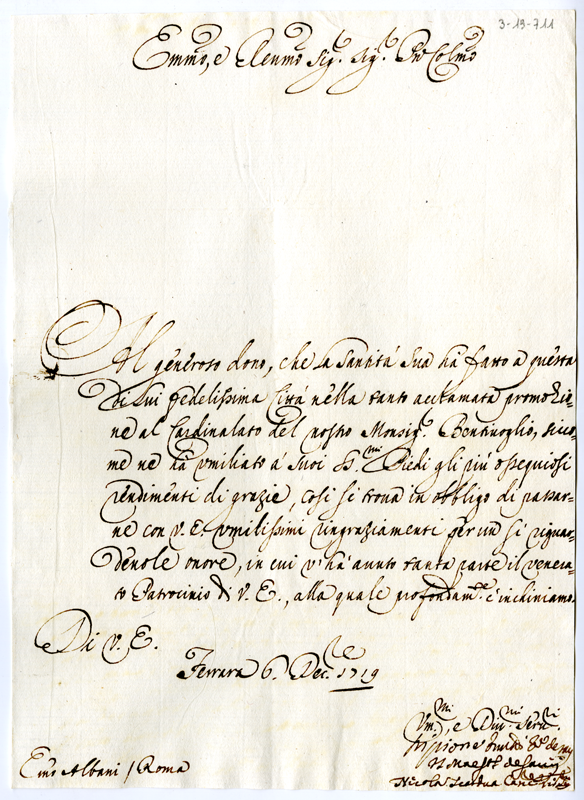 3-19-711
Emmo, e Reumo Sig.r Sig.r Prô Colmo
Al generoso dono, che la Santità Sua hà fatto a questa
di Lui fedelissima Città nella tanto acclamata promozio=
ne al Cardinalato del nostro Monsig.r Bentiuoglio, sicco=
me ne hà vmiliato à Suoi SS.mi Piedi gli più ossequiosi
rendimenti di grazie, così si troua in obbligo di passar=
ne con V. E. vmilissimi ringraziamenti per un sì riguar=
deuole onore, in cui v'hà auuto tanta parte il venera=
to Patrocinio di V. E., alla quale profondam.te c'inchiniamo.
Di V. E.
Ferrara 6. Dec.bre 1719
Vm.mi, e Diu.mi Seru.ri
Il Maest.
Nicolò
Emô Albani / Roma